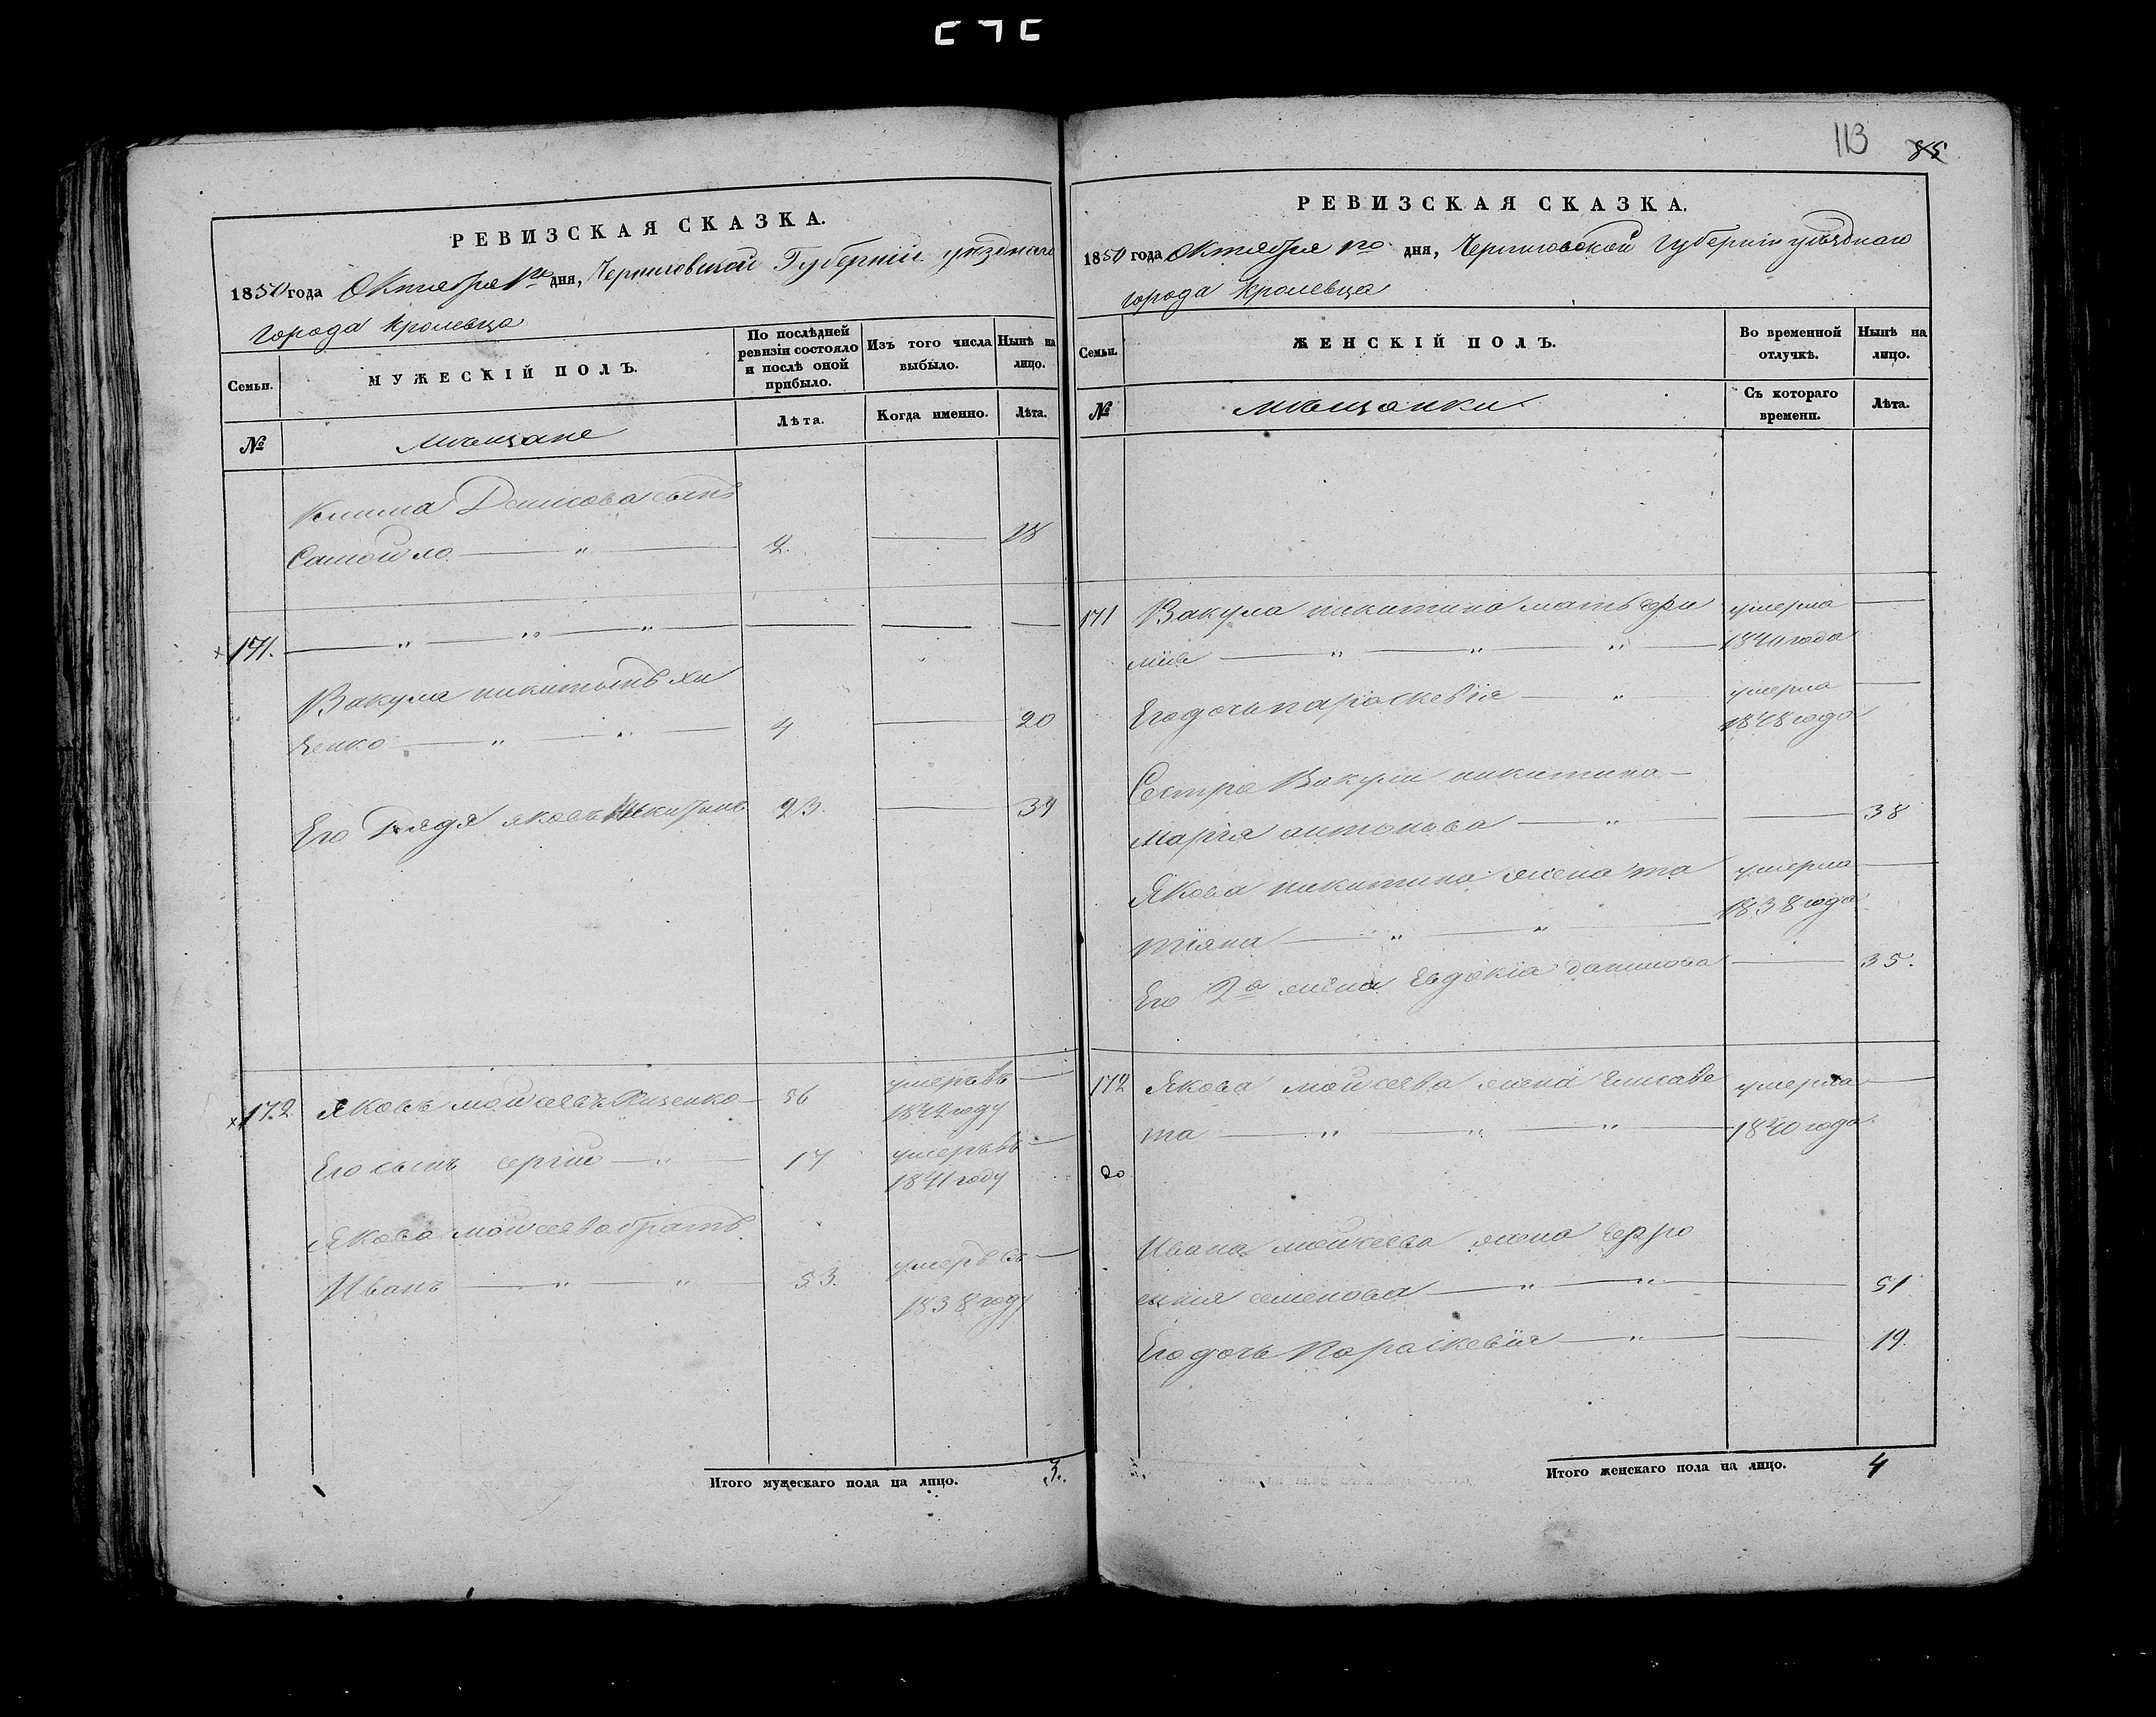 113 85
РЕВИЗСКАЯ СКАЗКА.
1850 года Октября 1го дня, Черниговской Губернии уѣзднаго
города Кролевца
Семьи.
МУЖЕСКІЙ ПОЛЪ.
По послѣдней
ревизіи состояло
и послѣ оной
прибыло.
Изъ того числа
выбыло.
Нынѣ на
лицо.
№
мѣщане
Лѣта.
Когда именно.
Лѣта.
Клима Денисова сынъ
Самойло — " — 2. — 18
171. — " — " — " — — —
Вакула никитинъ
ченко — " — " — 4 — 20
Его Дядя яковъ Никитинъ 23. — 39
172 Яковъ моисеевъ 56 умеръ въ —
1842 году
Его сынъ сергій — " — 17 умеръ въ —
1841 году
Якова моисеева братъ
Иванъ — " — " — 53. умеръ въ —
1838 году
Итого мужескаго пола на лицо. 3.
РЕВИЗСКАЯ СКАЗКА.
1850 года Октября 1го дня, Черниговской губерніи уѣзднаго
города Кролевца
Семьи.
ЖЕНСКІЙ ПОЛЪ.
Во временной
отлучкѣ.
Нынѣ на
лицо.
№
мѣщанки
Съ котораго
времени.
Лѣта.
171 Вакула никитина мать ефи умерла —
мія — " — " — " — 1840 года
Его дочь параскевія — " — умерла —
1848 года
Сестра Вакули никитина —
марія антонова — " — — 38
Якова никитина жена та умерла —
тіяна — " — " — 1838 года
Его 2а жена Евдокія — 35.
172 Якова моисеева жена Елисаве умерла —
та — " — " — " — 1840 года
20
Ивана моисеева жена ефро
синия семенова — " — " — 51
Его дочь Параскевія — " — — 19.
Итого женскаго пола на лицо. 4